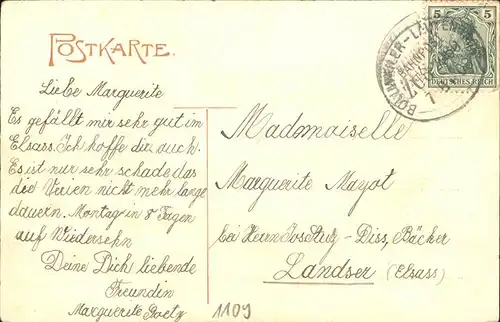 POSTKARTE.
5 5
DEUTSCHES REICH
BOLLWEILER-LAUTENBACH
BAHNPOST
Liebe Marguerite
Es gefällt mir sehr gut im
Elsass. Ich hoffe dir auch.
Es ist nur sehr schade das
die Ferien nicht mehr lange
dauern. Montag in 8 Tagen
auf Wiedersehn
Deine Dich liebende
Freundin
Marguerite Goetz
Mademoiselle
Marguerite Mayot
bei Herrn Jos -Diss, Bäcker
Landser (Elsass)
1109